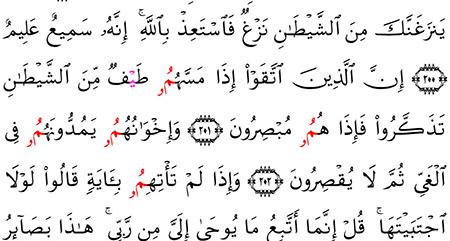 يَنزَغَنَّكَ مِنَ ٱلشَّيْطَـٰنِ نَزْغٌ فَٱسْتَعِذْ بِٱللَّهِ ۚ إِنَّهُۥ سَمِيعٌ عَلِيمٌ
﴿٢٠٠﴾ إِنَّ ٱلَّذِينَ ٱتَّقَوْا۟ إِذَا مَسَّهُمُۥ طَيْفٌ مِّنَ ٱلشَّيْطَـٰنِ
تَذَكَّرُوا۟ فَإِذَا هُمُۥ مُبْصِرُونَ ﴿٢٠١﴾ وَإِخْوَٰنُهُمُۥ يَمُدُّونَهُمُۥ فِى
ٱلْغَىِّ ثُمَّ لَا يُقْصِرُونَ ﴿٢٠٢﴾ وَإِذَا لَمْ تَأْتِهِمُۥ بِـَٔايَةٍ قَالُوا۟ لَوْلَا
ٱجْتَبَيْتَهَا ۚ قُلْ إِنَّمَآ أَتَّبِعُ مَا يُوحَىٰٓ إِلَىَّ مِن رَّبِّى ۚ هَـٰذَا بَصَآئِرُ